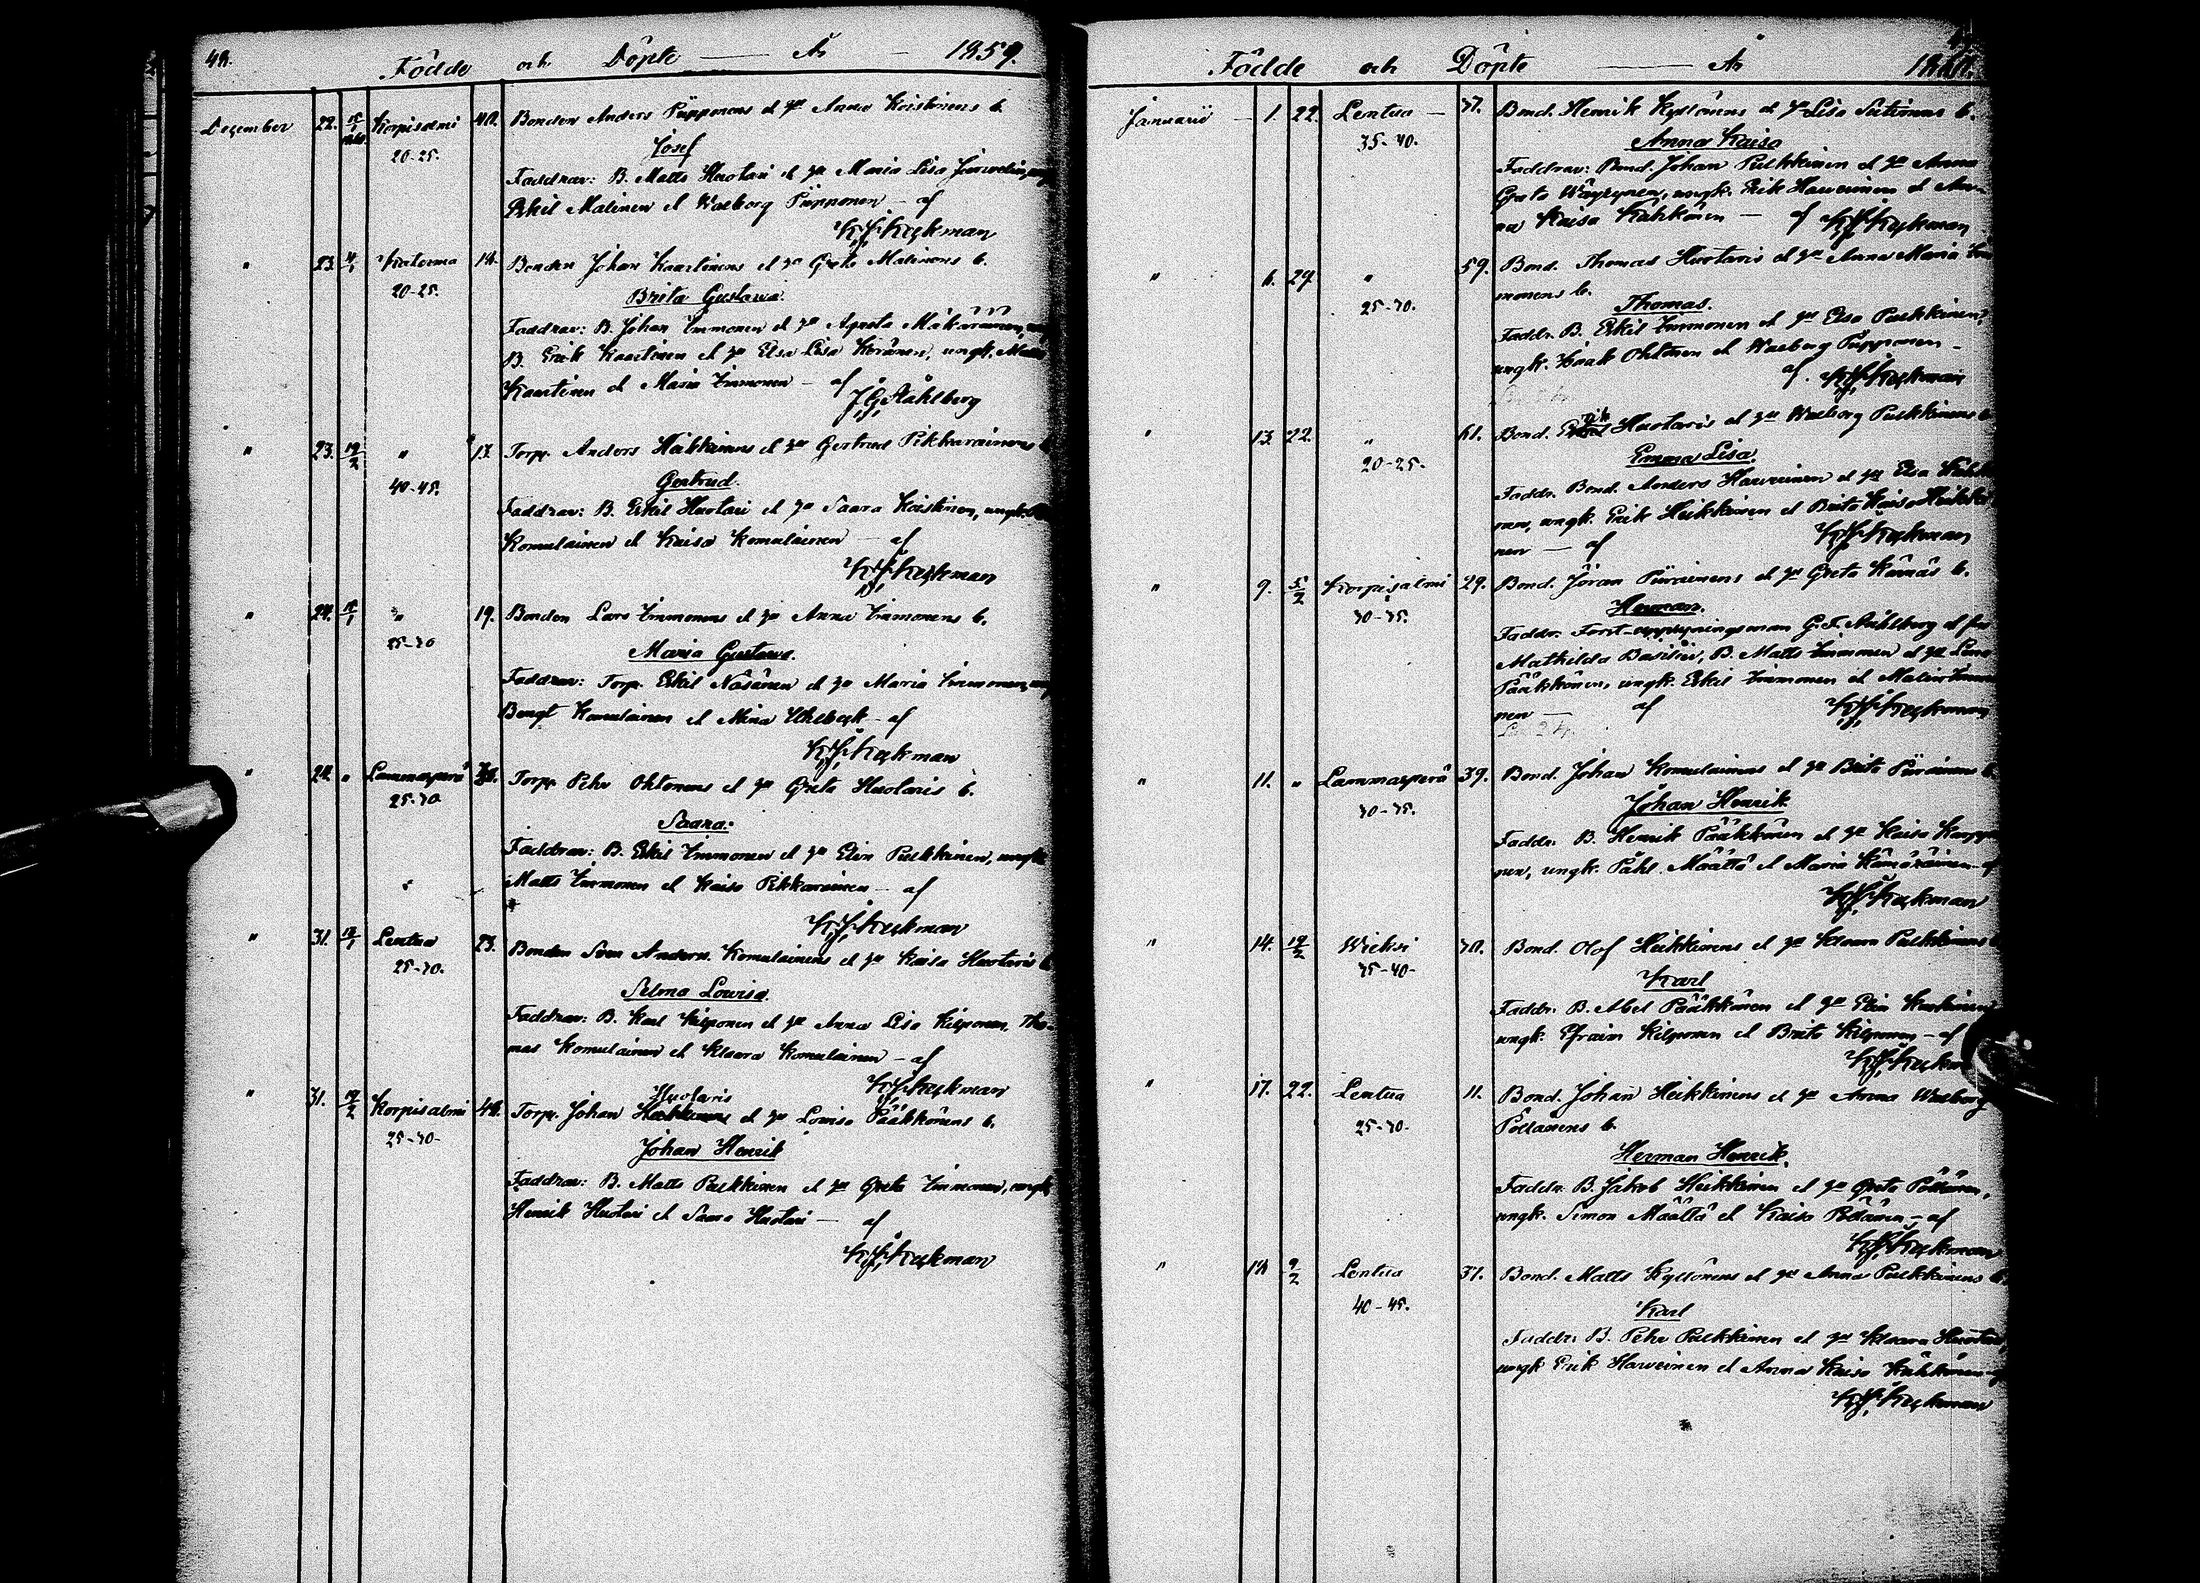 48.
Födde och Döpte — År — 1859.
December 22. Korpisalmi 40. Bonden Anders Piipponens et h:u Anna Koistinens b.
20-25. Josef
Faddrar: B. Matts Huotari et h:u Maria Lisa
Eskil Malinen et Walborg Piipponen — af
Keckman
" 23. 4/1 Katerma 18. Bonden Johan Kaartinens et h:u Greta Malinens b.
20-25. Brita Gustava.
Faddrar: B. Johan Immonen et h:u Agneta
B. Erik Kaartinen et h:u Elsa Lisa Keränen, ungk. Matts
Kaartinen et Maria Immonen — af
J. G. Ståhlberg
" 23. 19/2 " 17. Torp. Anders Heikkinens et h:u Gertrud Pikkarainens b.
40-45. Gertrud.
Faddrar: B. Eskil Huotari et h:u Saara Koistinen, ungk.
Komulainen et Kaisa Komulainen — af
Keckman
" 24. " 19. Bonden Lars Immonens et h:u Anna Immonens b.
25-30 Maria Gustava.
Faddrar: Torp. Eskil Näsänen et h:u Maria Immonen,
Bengt Komulainen et Mina Uhlbäck — af
Keckman
" 24. " Lammasperä Torp. Pehr Ohtonens et h:u Greta Huotaris b.
25-30. Saara.
Faddrar: B. Eskil Immonen et h:u Elin Pulkkinen, ungk.
Matts Immonen et Kaisa Pikkarainen — af
Keckman
" 31. Lentua 23. Bonden Sven Anders Komulainens et h:u Kaisa Huotaris b.
25-30. Selma Lovisa.
Faddrar: B. Karl Kilponen et h:u Anna Lisa Kilponen, Tho-
mas Komulainen et Klaara Komulainen — af
Keckman
Huotaris
" 31. 19/2 Korpisalmi 48. Torp. Johan et h:u Lovisa Pääkkönens b.
25-30- Johan Henrik
Faddrar: B. Matts Pulkkinen et h:u Greta Immonen, ungk.
Henrik Huotari et Saara Huotari — af
Keckman
Födde och Döpte — År
Januarii — 1. 22. Lentua — 37. Bond. Henrik Kyllönens et h:u Lisa Sutinens b.
35-40. Anna Kaisa
Faddrar: Bond. Johan Pulkkinen et h:u Anna
Greta Väyrynen, ungk. Erik Harveinen et An-
na Kaisa Kähkönen — af Keckman
" 6. 29 " 59. Bond. Thomas Huotaris et h:u Anna Maria Im-
25-30. monens b. Thomas.
Faddr. B. Eskil Immonen et h:u Elsa Pulkkinen,
ungk. Isaak Ohtonen et Walborg Piipponen —
af. Keckman
" 13. 22. " 61. Bond. Erik Huotaris et h:u Walborg Pulkkinens b.
20-25. Emma Lisa.
Faddr. Bond. Anders Harveinen et h:u Elsa
nen, ungk. Erik Heikkinen et Brita Kaisa Heikki-
nen — af Keckman
" 9. 5/2 Korpisalmi 29. Bond. Jöran Piirainens et h:u Greta Kärnäs b.
30-35. Herman.
Faddr. Forst-uppsyningsman G. F. Ståhlberg et fru
Mathilda Basilier, B. Matts Immonen et h:u Lena
Pääkkönen, ungk. Eskil Immonen et Malin Immo-
nen — af Keckman
" 11. " Lammasperä 39. Bond. Johan Komulainens et h:u Brita Piirainens b.
30-35. Johan Henrik.
Faddr. B. Henrik Pääkkönen et h:u Kaisa Karppi-
nen, ungk. Påhl Määttä et Maria Kämäräinen — af
Keckman
" 14. 19/2 Wieksi 30. Bond. Olof Heikkinens et h:u Klaara Pulkkinens b.
35-40- Karl
Faddr. B. Abel Pääkkönen et h:u Elin
ungk. Efraim Kilponen et Brita Kilponen — af
Keckman
" 17. 22. Lentua 11. Bond. Johan Heikkinens et h:u Anna Walborg
25-30- Pöllänens b.
Herman Henrik.
Faddr. B. Jakob Heikkinen et h:u Greta Pöllänen,
ungk. Simon Määttä et Kaisa Pöllänen — af
Keckman
" 18 9/2 Lentua 37. Bond. Matts Kyllönens et h:u Anna Pulkkinens b.
40-45. Karl
Faddr. B. Pehr Pulkkinen et h:u Klaara Huotari,
ungk. Erik Harveinen et Anna Kaisa Kähkönen — af
Keckman